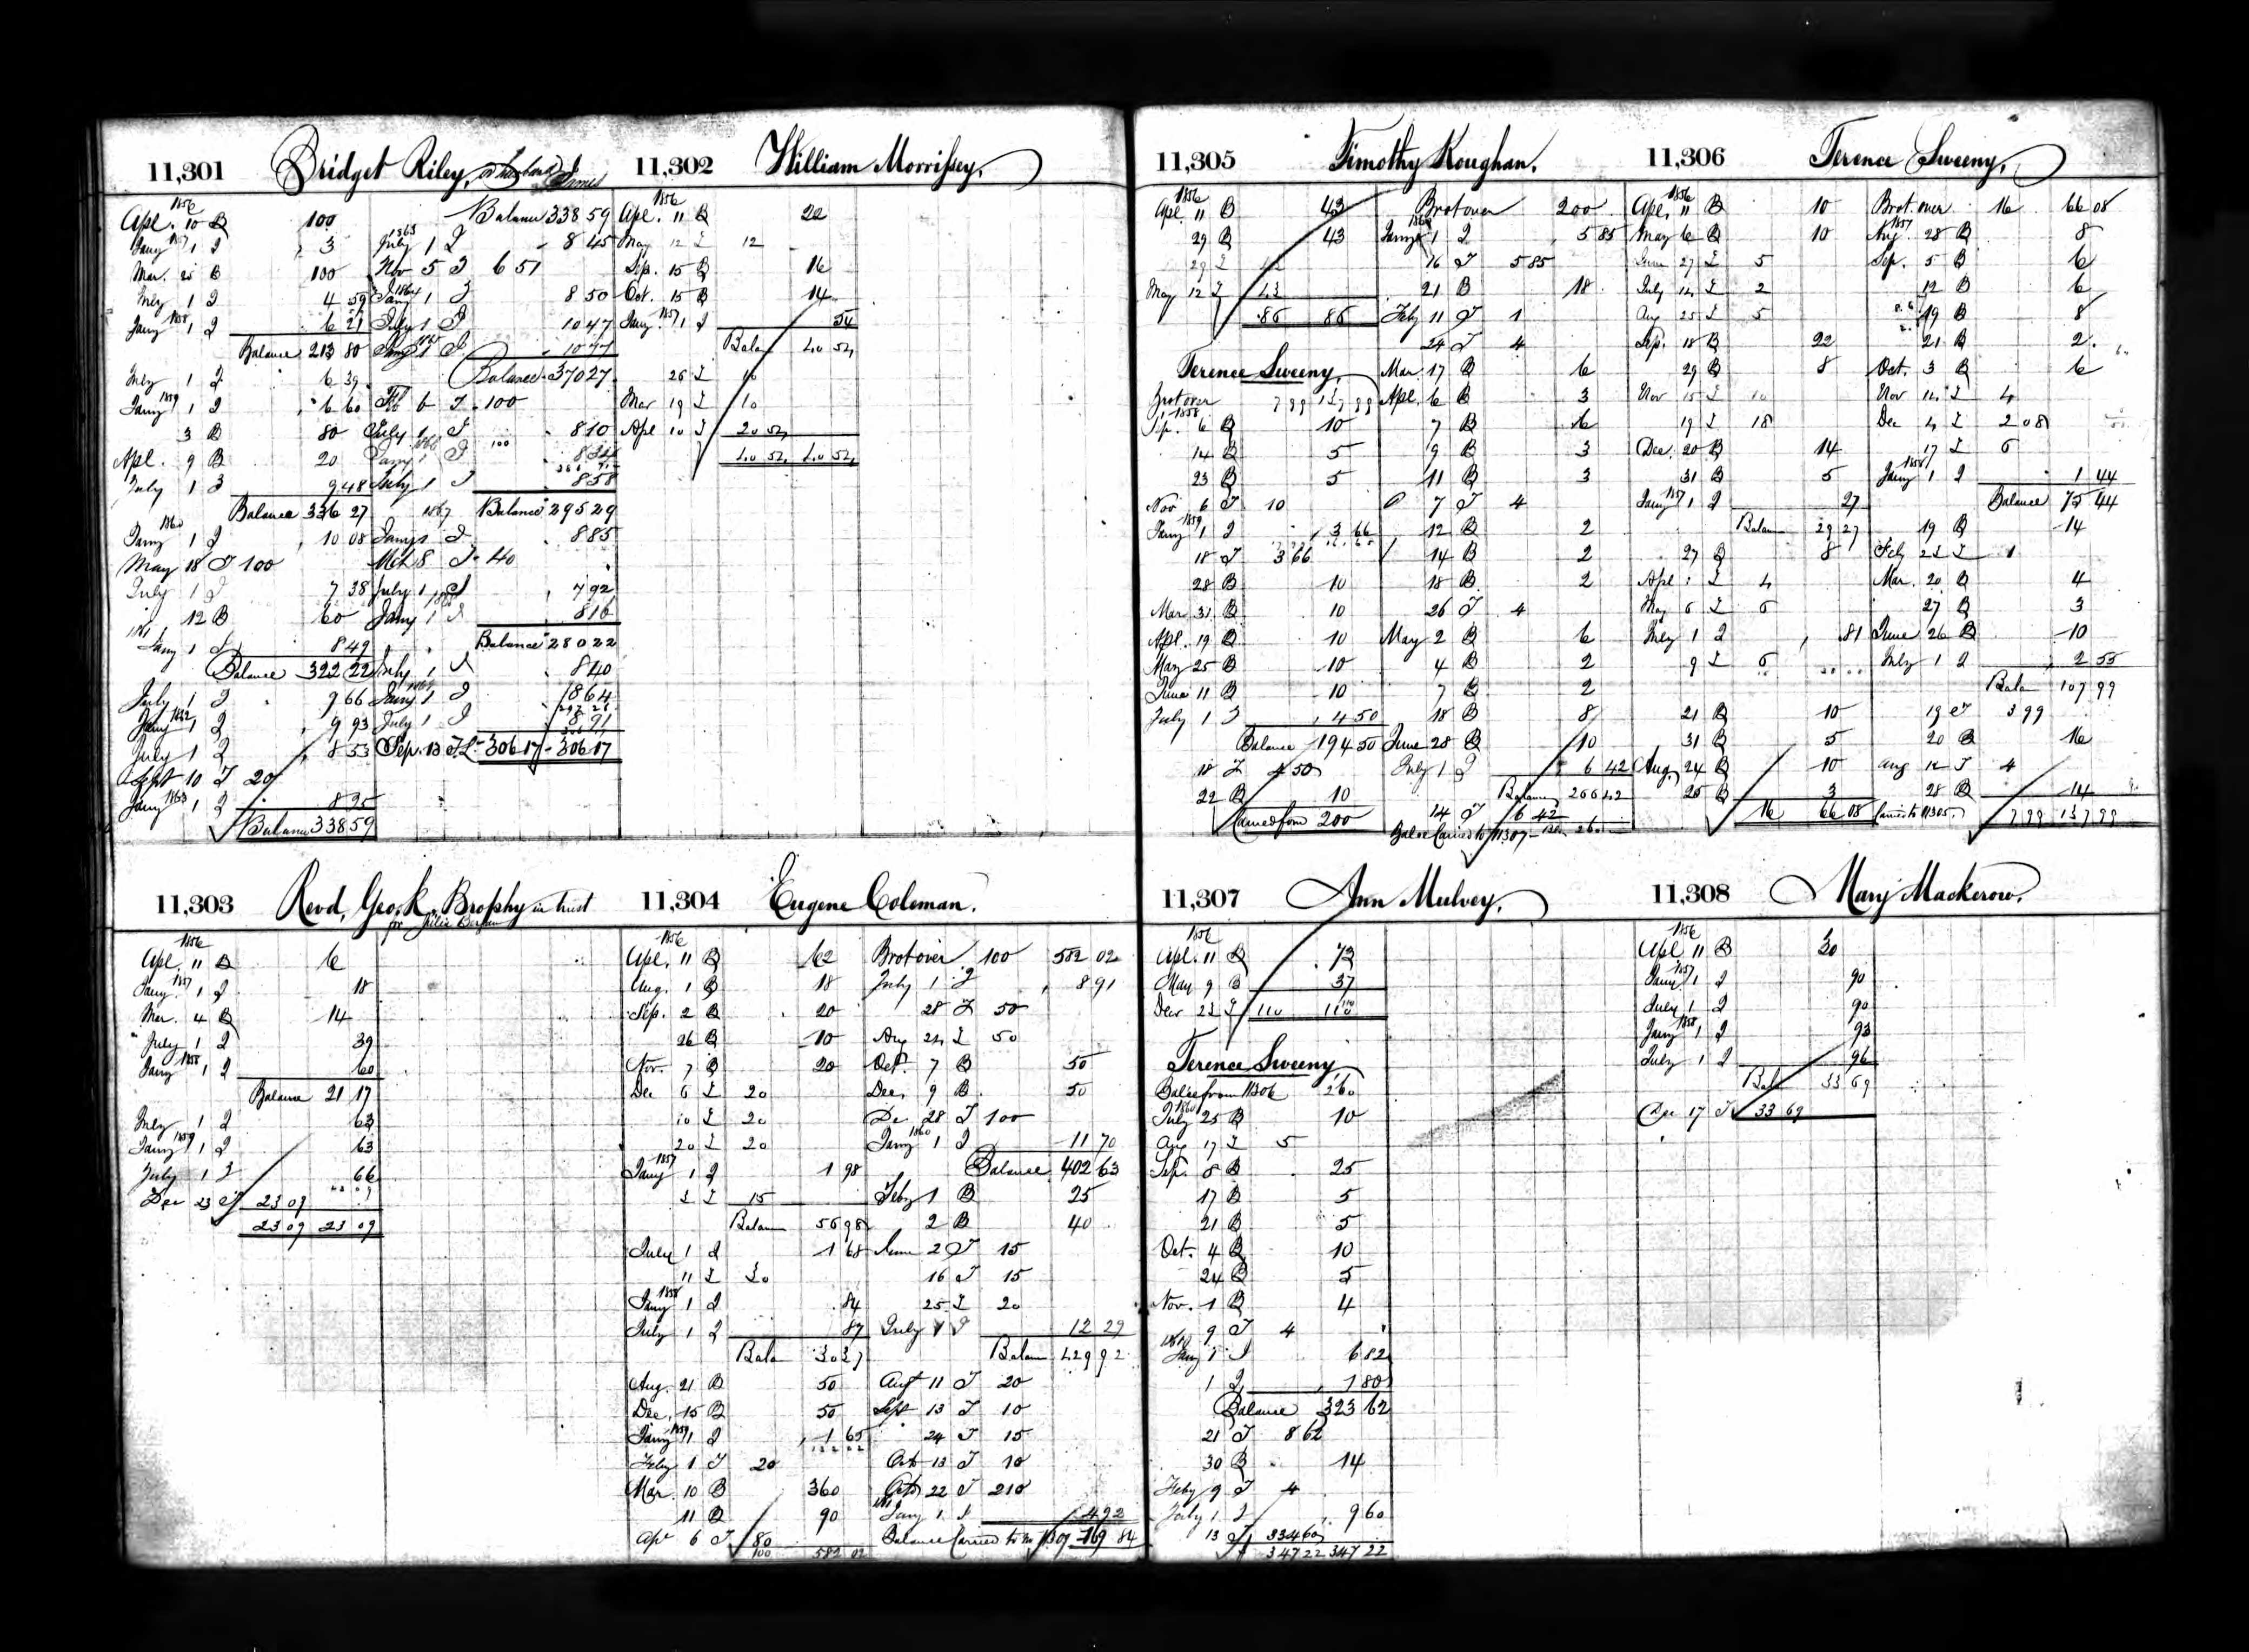 11,301 Bridget Riley, or husband James
1856
Apl. 10 B 100
Jany 1857 1 I 3
Mar. 25 B 100
July 1 I 4 59
Jany 1858 1 I 6 21
Balance 213 80
July 1 I 6 39
Jany 1859 1 I 6 60
3 B 80
Apl. 9 B 20
July 1 I 9 48
Balance 336 27
Jany 1860 1 I 10 08
May 18 T 100
July 1 I 7 38
12 B 60
1861
Jany 1 I 8 49
Balance 322 22
July 1 I 9 66
Jany 1862 1 I 9 93
July 1 I 8 53
Sept 10 T 20
Jany 1863 1 I 8 25
Balance 338 59
Balance 338 59
1863
July 1 I 8 45
Nov 5 T 6 51
Jany 1864 1 I 8 50
July 1 I 10 47
Jany 1865 1 I 10 77
Balance 370 27
Feb 6 T 100
July 1 I 8 10
Jany 1866 1 I 8 34
July 1 I 8 58
1867 Balance 295 29
Jany 1 I 8 85
Mch 8 T 40
July 1 I 7 92
Jany 1868 1 I 8 16
Balance 280 22
July 1 I 8 40
Jany 1869 1 I 8 64
July 1 I 8 91
Sep. 13 T 306 17 306 17
11,302 William Morrissey,
1856
Apl. 11 B 22
May 12 T 12
Sep. 15 B 16
Oct. 15 B 14
Jany 1857 1 I 54
Balan 40 54
26 T 10
Mar 19 T 10
Apl 10 T 20 54
40 54 40 54
11,303 Revd, Geo. K. Brophy in trust
for Julia
1856
Apl. 11 B 6
Jany 1857 1 I 18
Mar. 4 B 14
July 1 I 39
Jany 1858 1 I 60
Balance 21 17
July 1 I 63
Jany 1859 1 I 63
July 1 I 66
Dec 23 T 23 09
23 09 23 09
11,304 Eugene Coleman.
1856
Apl. 11 B 62
Aug. 1 B 18
Sep. 2 B 20
26 B 10
Nov. 7 B 20
Dec 6 T 20
10 T 20
20 T 20
Jany 1857 1 I 1 98
2 T 15
Balan 56 98
July 1 I 1 68
11 T 30
Jany 1858 1 I 84
July 1 I 87
Bala 30 37
Aug. 21 B 50
Dec. 15 B 50
Jany 1859 1 I 1 65
Feby 1 T 20
Mar. 10 B 360
11 B 90
Apl 6 T 80
100 582 02
Brot over 100 582 02
July 1 I 8 91
28 T 50
Aug 24 T 50
Oct. 7 B 50
Dec. 9 B 50
De 28 T 100
Jany 1860 1 I 11 70
Balance 402 63
Feby 1 B 25
2 B 40
June 2 T 15
16 T 15
25 T 20
July 1 I 12 29
Balan 429 92
Augt 11 T 20
Sept 13 T 10
24 T 15
Octo 13 T 10
Octo 22 T 210
1861 Jany 1 I 4 92
Balance Carried to 11307 169 84
11,305 Timothy Koughan.
1856
Apl. 11 B 43
29 B 43
29 T 43
May 12 T 43
86 86
Terence Sweeny,
Brot over 7 99 137 99
1858
Sep. 6 B 10
14 B 5
23 B 5
Nov 6 T 10
Jany 1859 1 I 3 66
18 T 3 66
28 B 10
Mar 31 B 10
Apl. 19 B 10
May 25 B 10
June 11 B 10
July 1 I 4 50
Balance 194 50
18 T 4 50
22 B 10
Carried forw 200
Brot over 200
Jany 1860 1 I 5 85
16 T 5 85
21 B 18
Feby 11 T 1
24 T 4
Mar. 17 B 6
Apl. 6 B 3
7 B 16
9 B 3
11 B 3
7 T 4
12 B 2
14 B 2
18 B 2
26 T 4
May 2 B 6
4 B 2
7 B 2
18 B 8
June 28 B 10
July 1 I 6 42
Balance 266 42
14 T 6 42
Balce Carried to 11307 260
11,306 Terence Sweeny,
1856
Apl. 11 B 10
May 6 B 10
June 27 T 5
July 14 T 2
Aug 25 T 5
Sep. 18 B 22
29 B 8
Nov 15 T 10
19 T 18
Dec. 20 B 14
31 B 5
Jany 1857 1 I 27
Balan 29 27
27 B 8
Apl 1 T 4
May 6 T 6
July 1 I 81
9 T 6
21 B 10
31 B 5
Aug. 24 B 10
26 B 3
16 66 08
Brot. over 16 66 08
1857
Aug. 28 B 8
Sep. 5 B 6
12 B 6
19 B 8
21 B 2
Oct. 3 B 6
Nov 14 T 4
Dec 4 T 2 08
17 T 6
Jany 1858 1 I 1 44
Balance 75 44
19 B 14
Feby 23 T 1
Mar. 20 B 4
27 B 3
June 26 B 10
July 1 I 2 55
Bala 107 99
19 T 3 99
20 B 16
Aug 12 T 4
28 B 14
Carried to 11305. 7 99 137 99
11,307 Ann Mulvey,
1856
Apl. 11 B 73
May 9 B 37
Decr 23 T 110 110
Terence Sweeny
Balce from 11306 260
1860
July 25 B 10
Aug 17 T 5
Sep. 8 B 25
17 B 5
21 B 5
Oct. 4 B 10
24 B 5
Nov. 1 B 4
9 T 4
1861
Jany 1 I 6 82
1 I 1 80
Balance 323 62
21 T 8 62
30 B 14
Feby 9 T 4
July 1 I 9 60
13 T 334 60
347 22 347 22
11,308 Mary Mackerow.
1856
Apl 11 B 30
Jany 1857 1 I 90
July 1 I 90
Jany 1858 1 I 93
July 1 I 96
Bal 33 69
Dec 17 T 33 69